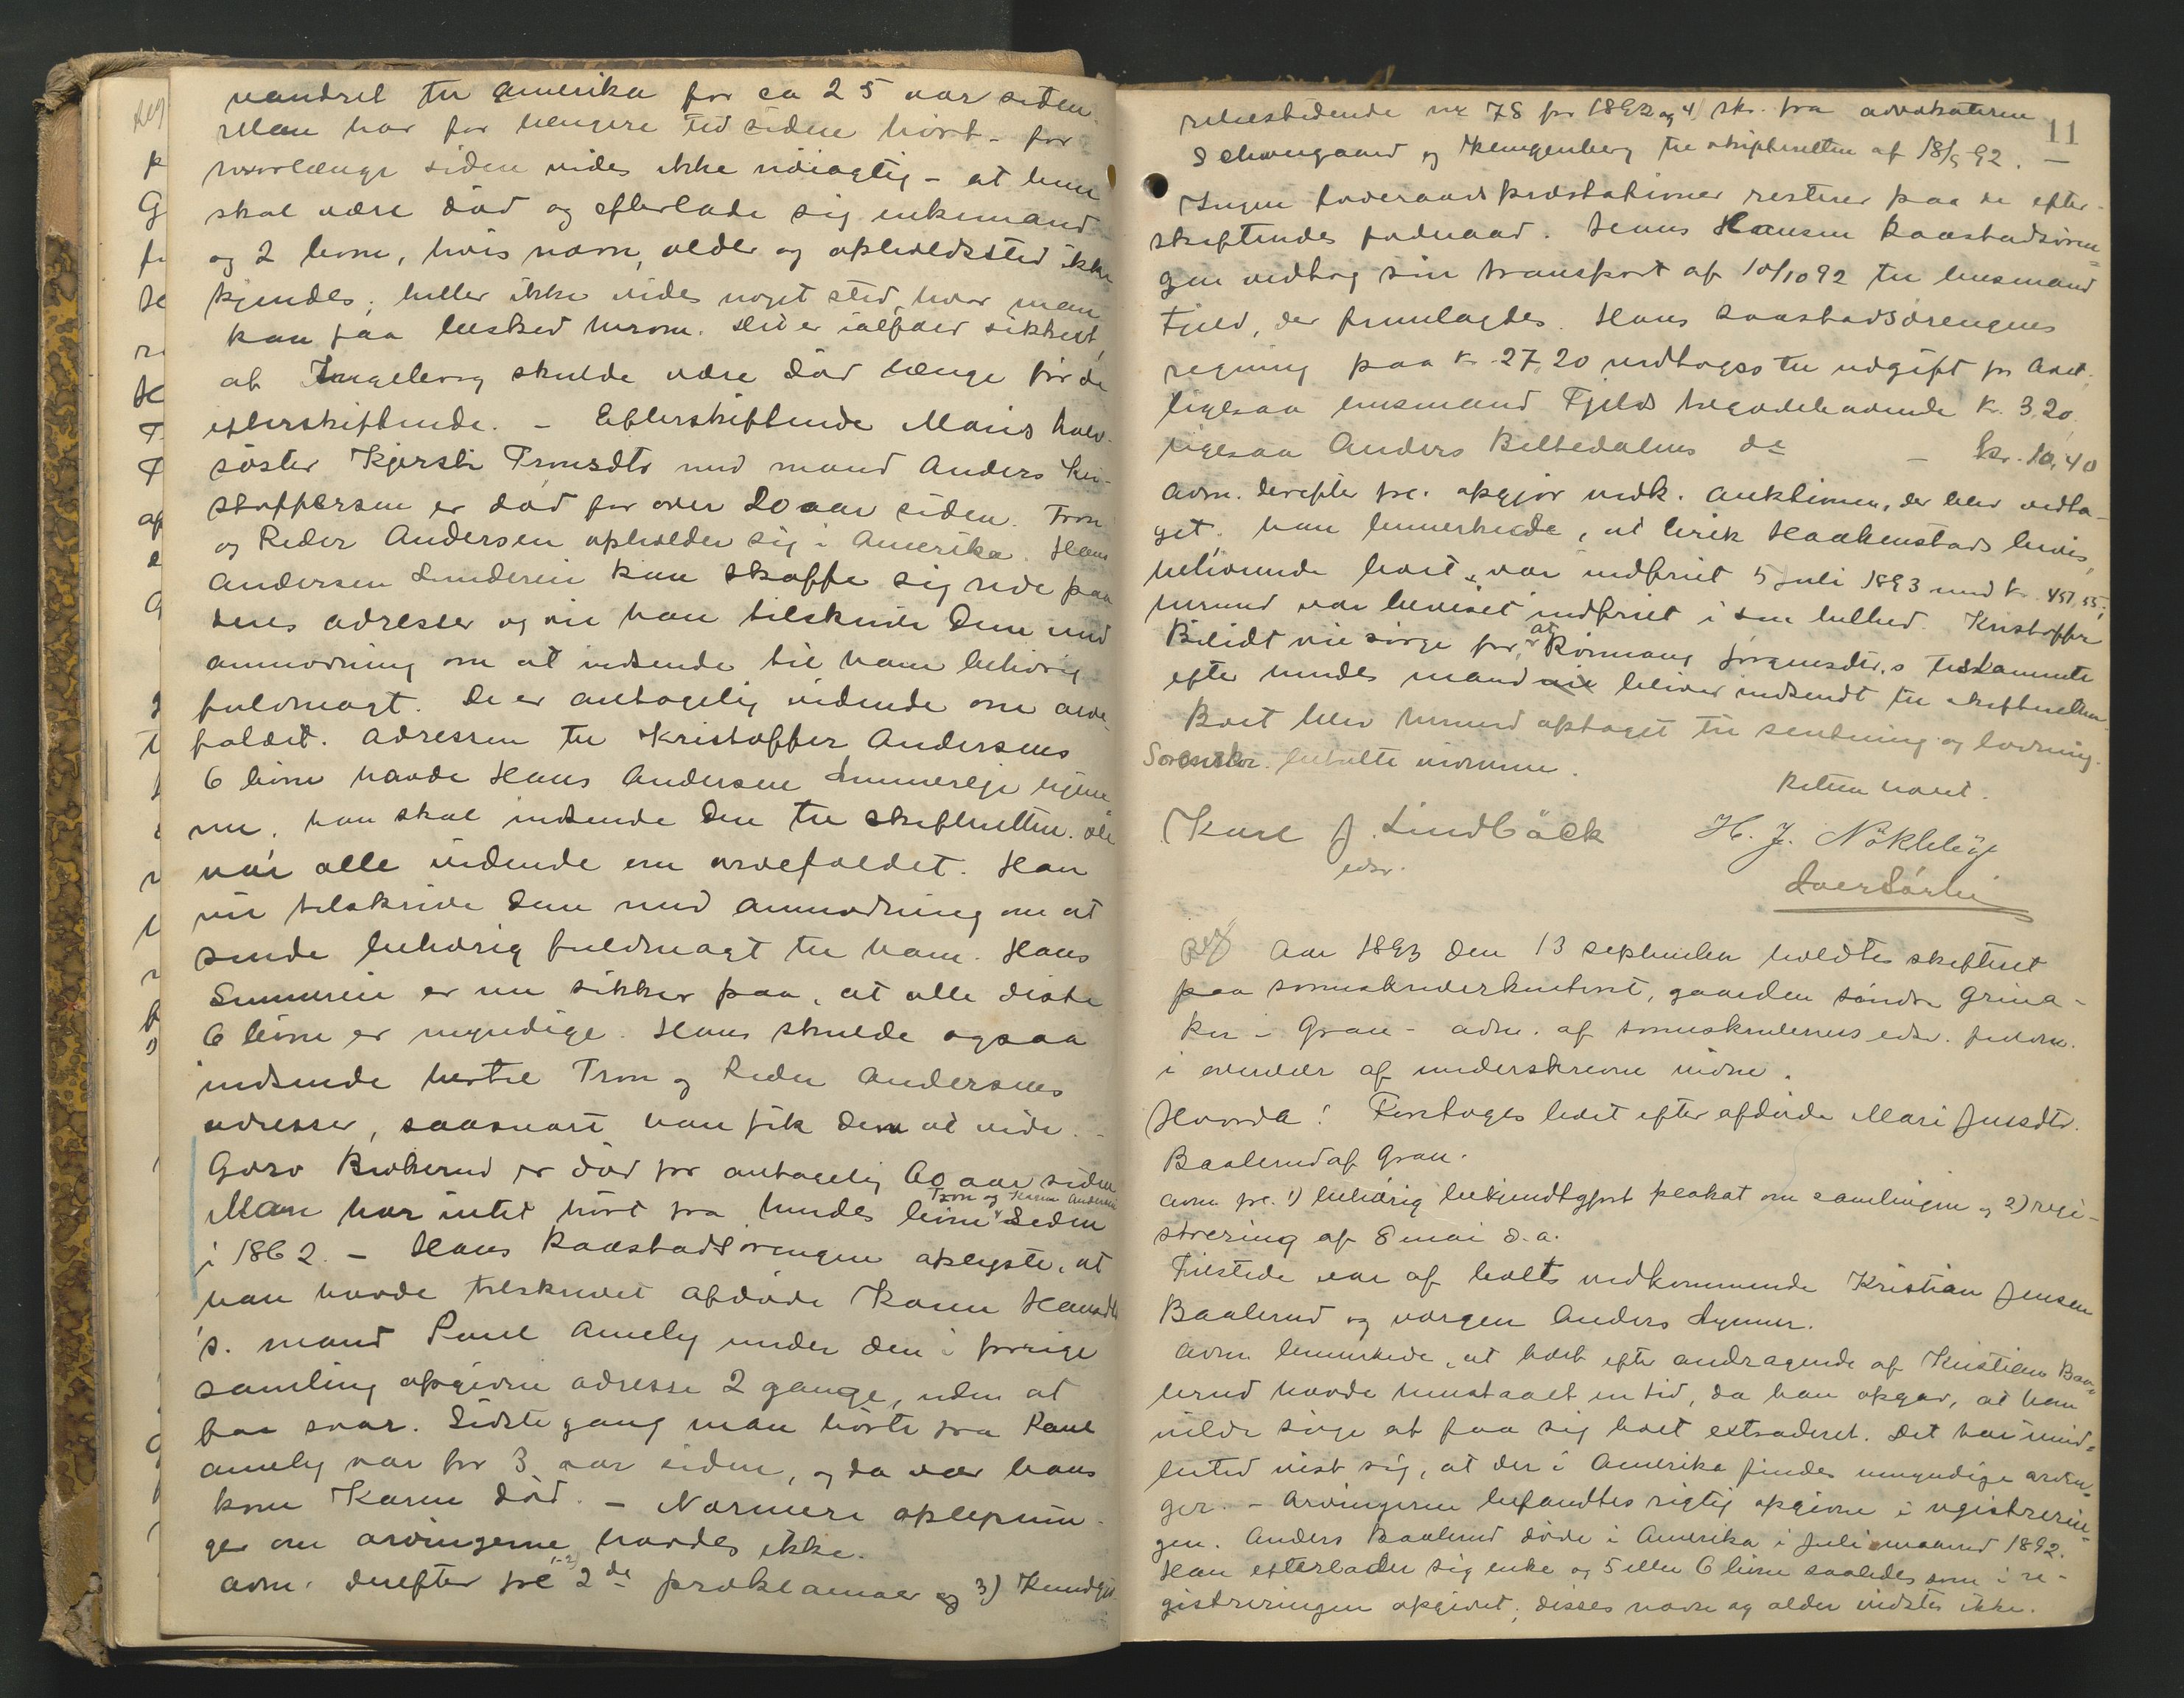 vandret til Amerika for ca 25 aar siden.
Man har for længere tid siden hørt - for
hvorlænge siden vides ikke nøiagtig - at hun
skal være død og efterlade sig enkemand
og 2 børn, hvis navn, alder og opholdssted ikke
kjendes; heller ikke vides noget sted, hvor man
kan faa besked herom. Det er ialfald sikkert,
at Ingeborg skulde være død længe før de
efterskiftende. - Efterskiftende Maris halv-
søster Kjersti Tronsdtr med mand Anders Kri-
stoffersen er død for over 20 aar siden. Tron
og Reder Andersen opholder sig i Amerika. Hans
Andersen kan skaffe sig rede paa
deres adresser og vil han tilskrive dem med
anmodning om at indsende til ham behørig
fuldmagt. De er antagelig vidende om arve
faldet. Adressen til Kristoffer Andersens
6 børn havde Hans Andersen ikke
nu, han skal indsende den til skifteretten. De
var alle vidende om arvefaldet. Han
vil tilskrive dem med anmodning om at
sende behørig fuldmagt til ham. Hans
er nu sikker paa, at alle disse
6 børn er myndige. Hans skulde ogsaa
indsende hertil Tron og Reder Andersens
adresser, saasnart han fik dem at vide. -
Goro er død for antagelig 60 aar siden
Tron og Karen Anders
Man har intet hørt fra hendes børn siden
i 1862. - Hans Raastadsvengen oplyste, at
han havde tilskrevet afdøde Karen Hansdtr
's. mand Paul Amely under den i forrige
samling opgivne adresse 2 gange, uden at
faa svar. Sidste gang man hørte fra Paul
Amely var for 3 aar siden, og da var hans
kone Karen død. - Nærmere oplysnin-
ger om arvingerne havdes ikke.
Adm. derefter fre 1-2) 2de proklamaer og 3) Kundgj.
11
relsestidende nr 78 for 1892 og 4) skr. fra advokaterne
Schwergaard og Klingenberg til skifteretten af 18/5 92. -
Ingen foderaadspræstationer resterer paa de efter-
skiftendes foderaad. Hans Hansen Raastadsven-
gen vedtog sin transport af 10/10 92 til husmand
Fjeld, der fremlagdes. Hans Raastadsvengens
regning paa kr. 27,20 vedtoges til udgift for boet.
ligesaa husmand Fjelds tilgodehavende kr. 3,20
ligesaa Anders Beltedalens do - kr. 10,40
Adm. derefter fre. opgjør vedk. auktionen, der blev vedta-
get. han bemerkede, at Erik Haakenstads bevis,
tilhørende boet, var indfriet 5 juli 1893 med kr. 451,55;
hermed var beviset indfriet i sin helhed. Kristoffer
Bilidt vil sørge for, at Rønnaug Jørgensdtr.s testamente
efter hendes mand bliver indsendt til skifteretten.
Boet blev hermed optaget til slutning og lodning.
Sorenskr. betalte vidnerne.
Retten hævet.
Karl J. Lindbäck H. J. Nökleby
edsv.
Iver Sørlie
Reg Aar 1893 den 13 september holdtes skifteret
paa sorenskriverkontoret, gaarden søndre Grina-
ker i Gran - adm. af sorenskriverens edsv. fuldm.
i overvær af underskrevne vidne.
Hvorda! Foretoges boet efter afdøde Mari Jensdtr.
Baalerud af Gran.
Adm fre. 1) behørig bekjendtgjort plakat om samlingen og 2) regi-
strering af 8 mai d. a.
Tilstede var af boets vedkommende Kristian Jensen
Baalerud og vergen Anders Lynner.
Adm. bemerkede, at boet efter andragende af Kristian Baa-
lerud havde henstaaet en tid, da han opgav, at han
vilde søge at faa sig boet extraderet. Det har imid-
lertid vist sig, at der i Amerika findes umyndige arvin-
ger. - Arvingerne befandtes rigtig opgivne i registrerin-
gen. Anders Baalerud døde i Amerika i Juli maaned 1892.
Han efterlader sig enke og 5 eller 6 børn saaledes som i re-
gistreringen opgivet; disses navne og alder vidstes ikke.